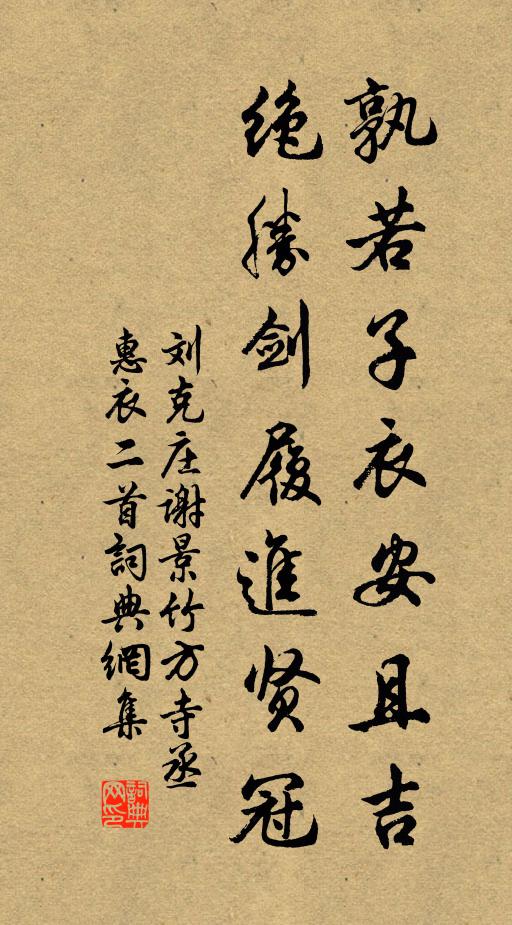 孰若子衣安且吉
绝勝剑履進贤冠
刘克庄谢景竹方寺丞
惠衣二首詞典網集
詞典
网印